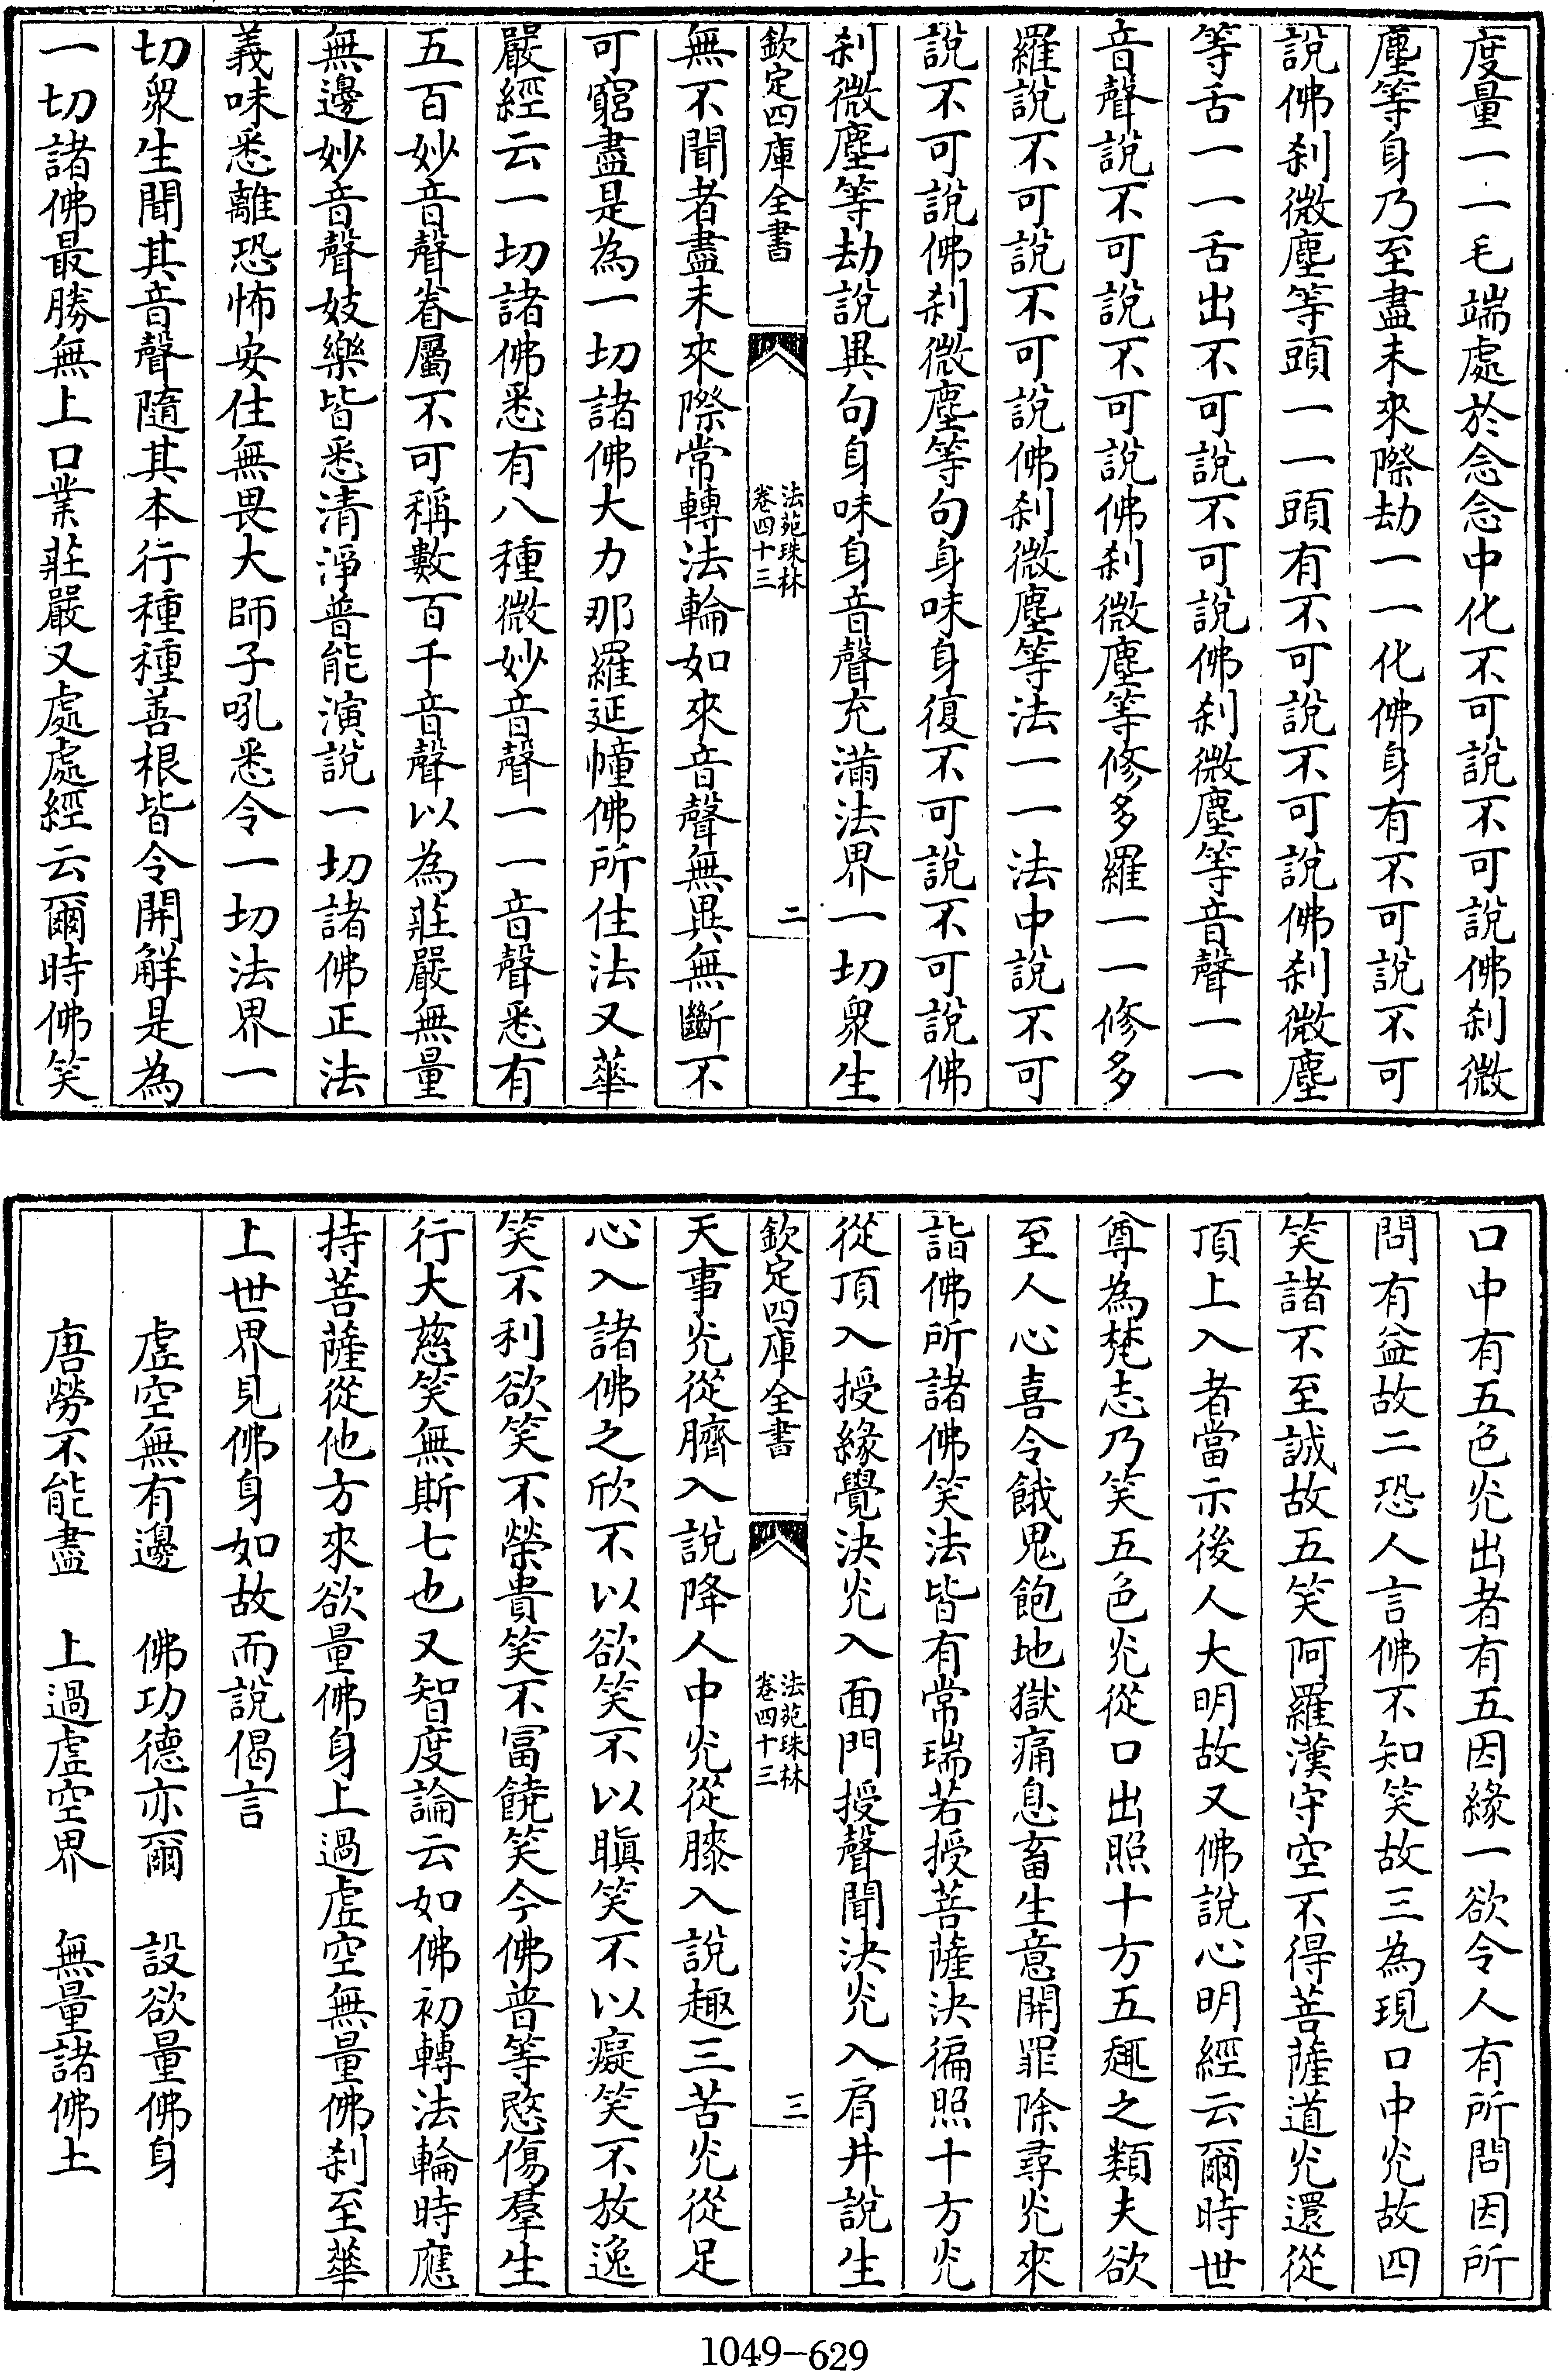 度量一一毛端處於念念中化不可說不可說佛剎微
塵等身乃至盡未來際劫一一化佛身有不可說不可
說佛剎微塵等頭一一頭有不可說不可說佛剎微塵
等舌一一舌出不可說不可說佛剎微塵等音聲一一
音聲說不可說不可說佛剎微塵等修多羅一一修多
羅說不可說不可說佛剎微塵等法一一法中說不可
說不可說佛剎微塵等句身味身復不可說不可說佛
剎微塵等劫說異句身味身音聲充滿法界一切眾生
欽定四庫全書
法苑珠林
卷四十三
二
無不聞者盡未來際常轉法輪如來音聲無異無斷不
可窮盡是為一切諸佛大力那羅延幢佛所住法又華
嚴經云一切諸佛悉有八種微妙音聲一一音聲悉有
五百妙音聲眷屬不可稱數百千音聲以為莊嚴無量
無邊妙音聲妓樂皆悉清淨普能演說一切諸佛正法
義味悉離恐怖安住無畏大師子吼悉令一切法界一
切眾生聞其音聲隨其本行種種善根皆令開解是為
一切諸佛最勝無上口業莊嚴又處處經云爾時佛笑
口中有五色光出者有五因緣一欲令人有所問因所
問有益故二恐人言佛不知笑故三為現口中光故四
笑諸不至誠故五笑阿羅漢守空不得菩薩道光還從
頂上入者當示後人大明故又佛說心明經云爾時世
尊為梵志乃笑五色光從口出照十方五趣之類夫欲
至人心喜令餓鬼飽地獄痛息畜生意開罪除尋光來
詣佛所諸佛笑法皆有常瑞若授菩薩決徧照十方光
從頂入授緣覺決光入面門授聲聞決光入肩井說生
欽定四庫全書
法苑珠林
卷四十三
三
天事光從臍入說降人中光從膝入說趣三苦光從足
心入諸佛之欣不以欲笑不以瞋笑不以癡笑不放逸
笑不利欲笑不榮貴笑不富饒笑今佛普等愍傷羣生
行大慈笑無斯七也又智度論云如佛初轉法輪時應
持菩薩從他方來欲量佛身上過虛空無量佛剎至華
上世界見佛身如故而說偈言
虛空無有邊　佛功德亦爾　設欲量佛身
唐勞不能盡　上過虛空界　無量諸佛土
1049-629